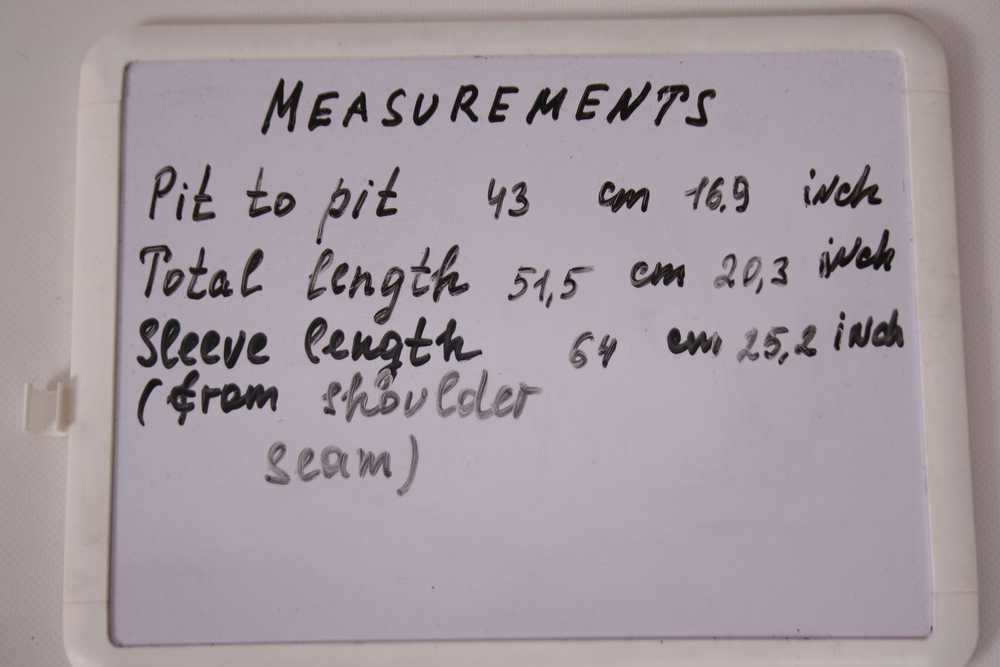 MEASUREMENTS
Pit to pit 43 cm 16.9 inch
Total length 51,5 cm 20,3 inch
Sleeve length 64 cm 25,2 inch
(from shoulder
seam)